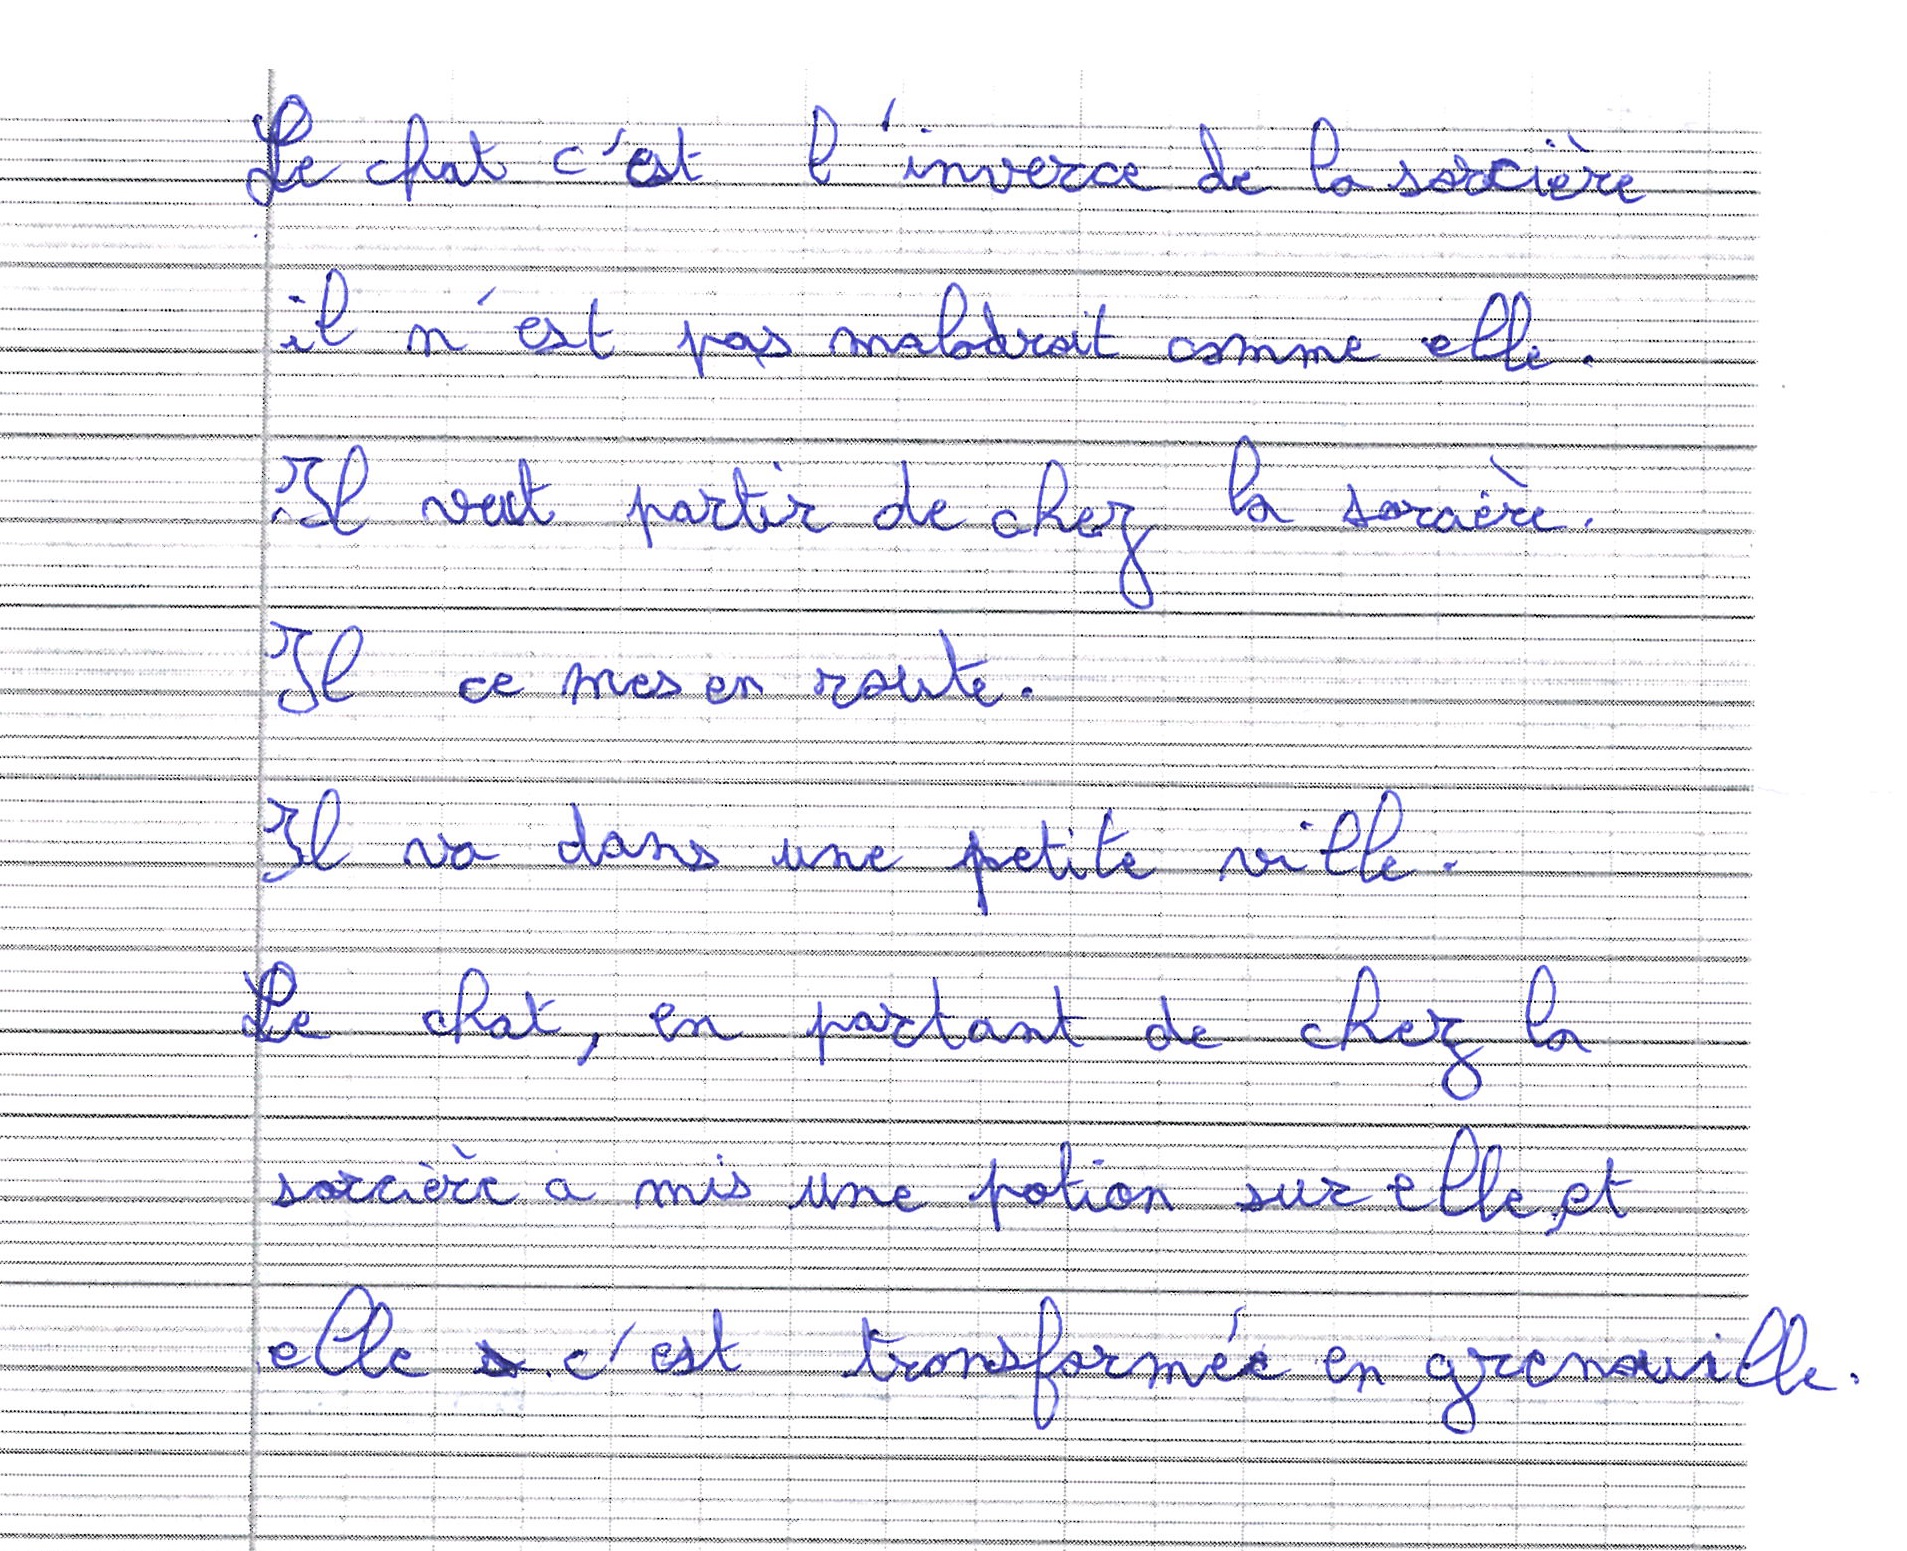 Le chat c'est l'inverce de la sorcière
il n'est pas maladroit comme elle.
Il veut partir de chez la sorcière.
Il ce mes en route.
Il va dans une petite ville.
Le chat, en partant de chez la
sorcière a mis une potion sur elle, et
elle c'est transformée en grenouille.